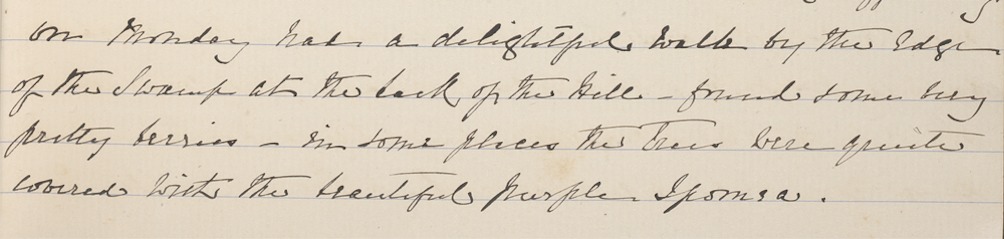 On Monday had a delightful walk by the Edge
of the Swamp at the back of the Hill – found some very
pretty berries – in some places the Trees were quite
covered with the beautiful purple Ipomea.